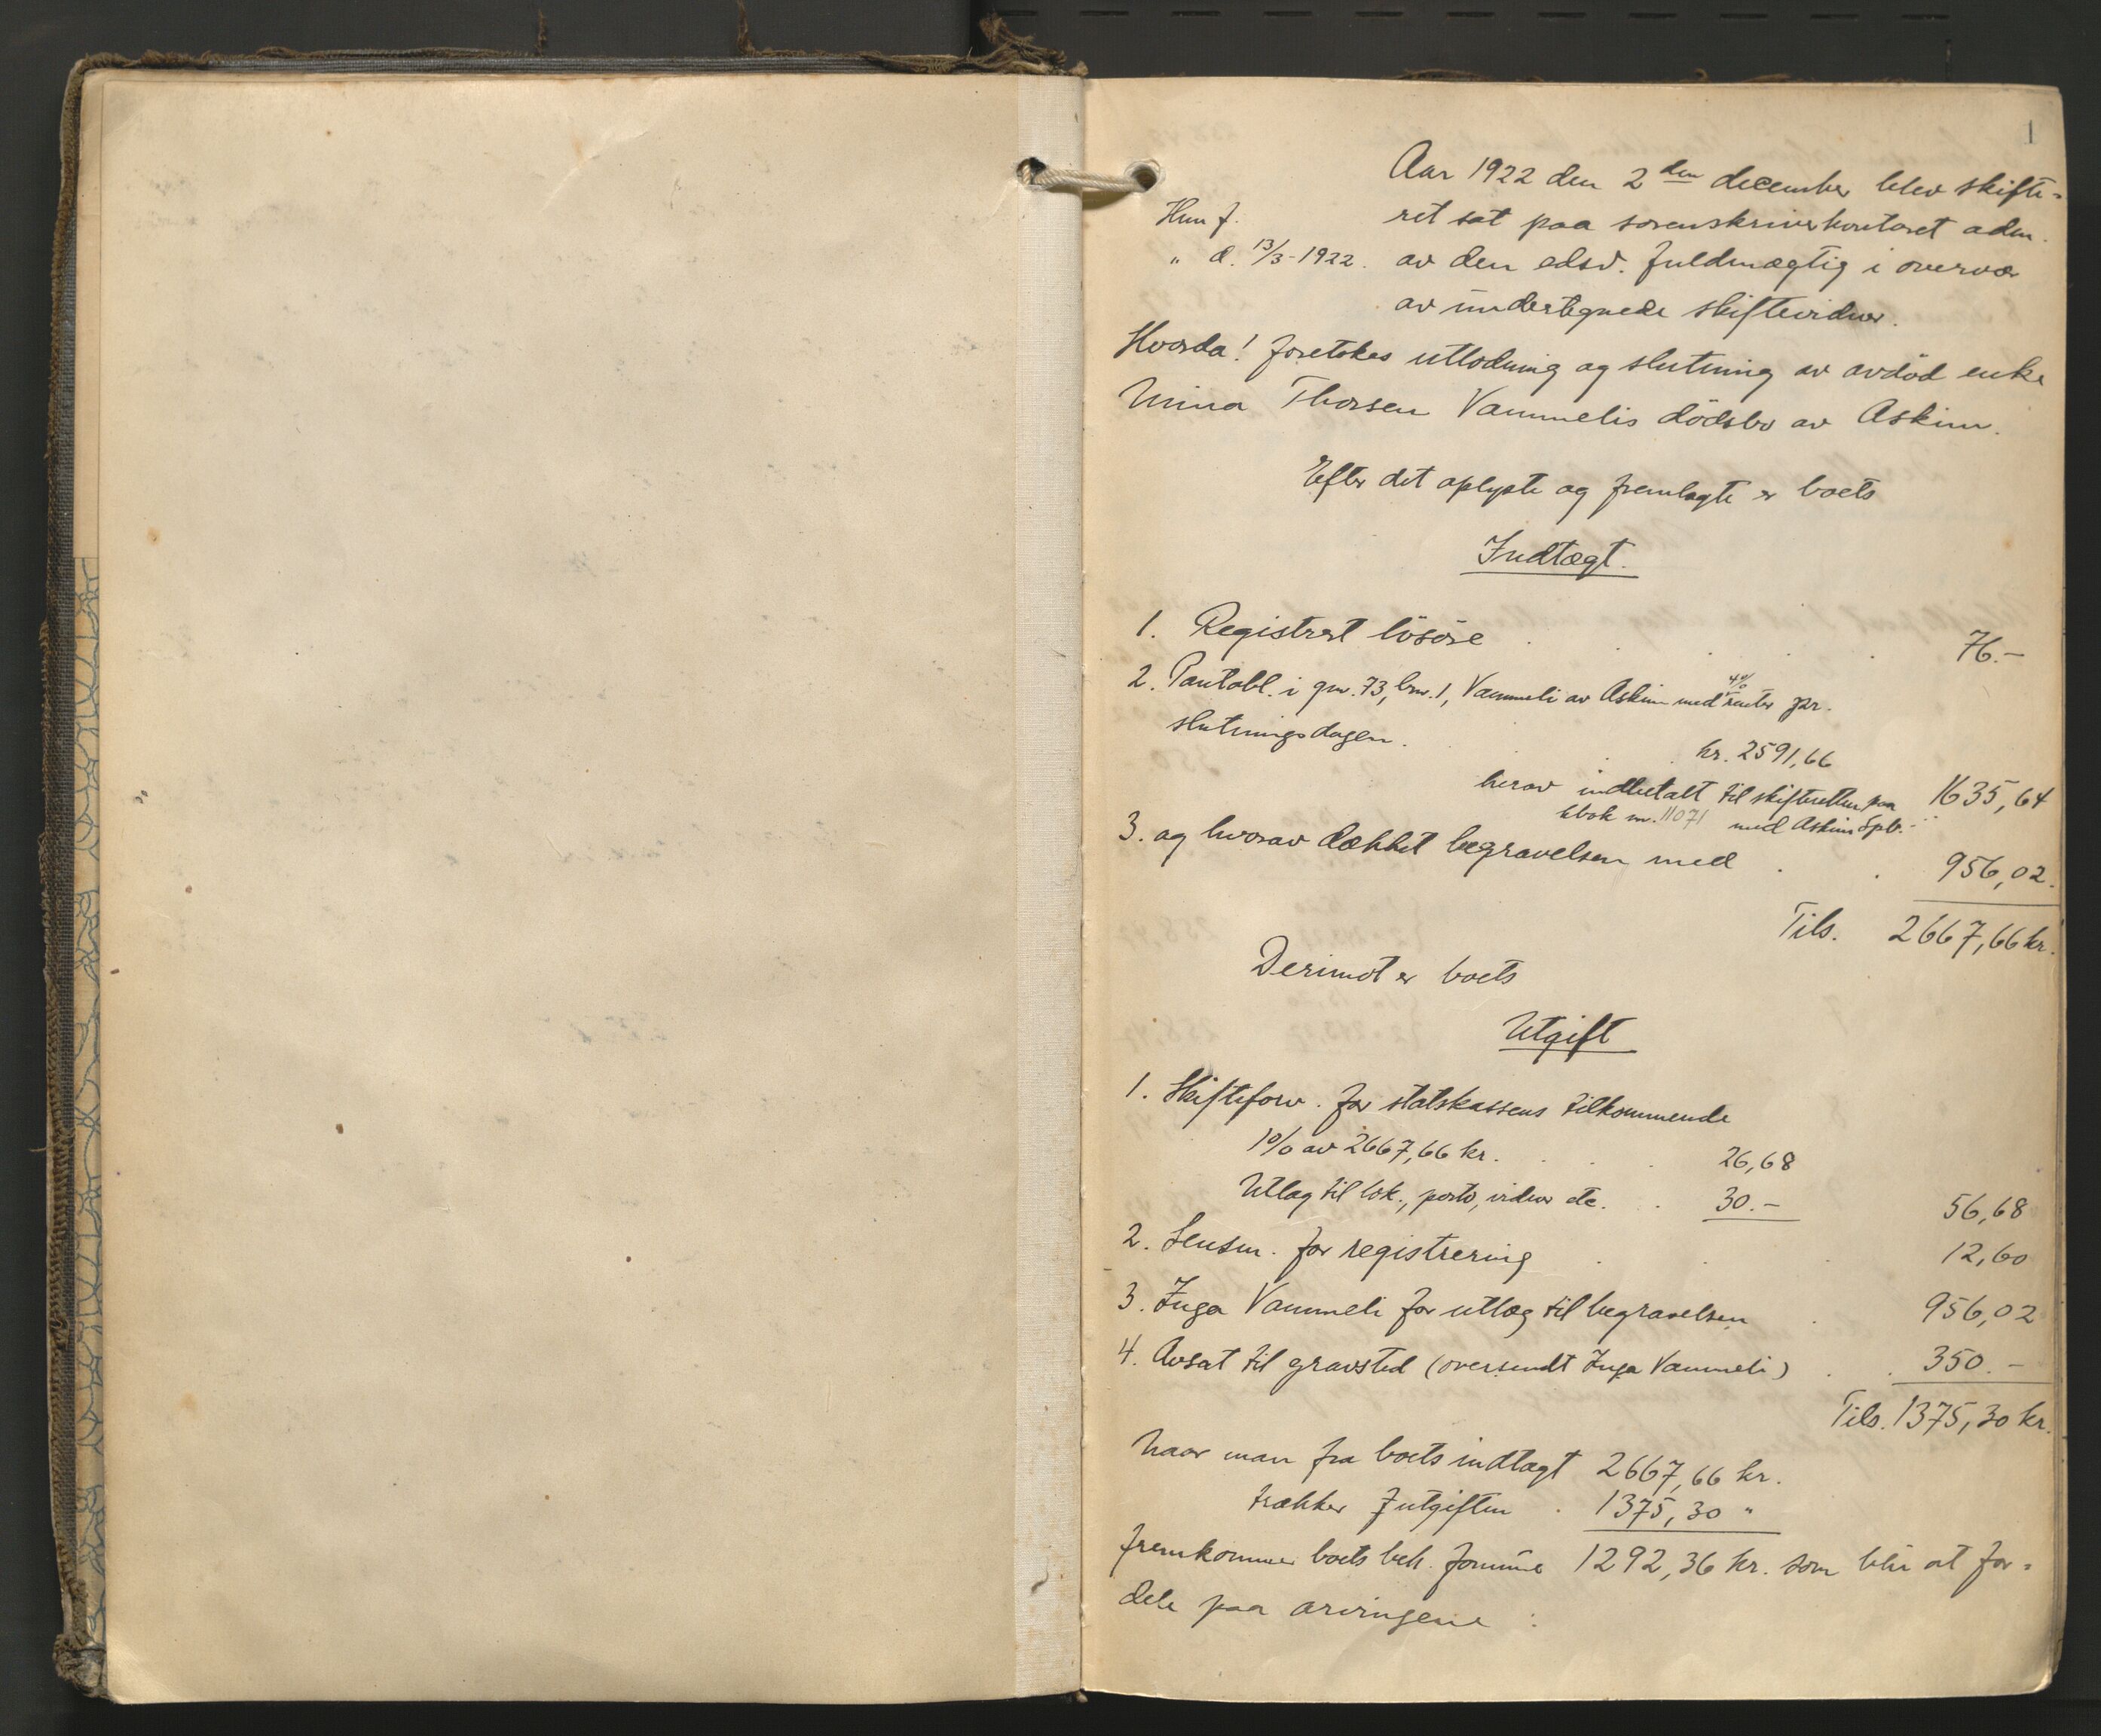 1
Aar 1922 den 2den december blev skifte-
Hun f.
ret sat paa sorenskriverkontoret adm.
" d. 13/3-1922.
av den edsv. fuldmægtig i overvær
av undertegnede skiftevidner.
Hvorda! foretokes utlodning og slutning av avdöd enke
Mina Thorsen Vammelis dödsbo av Askim.
Efter det oplyste og fremlagte er boets
Indtægt.
1. Registrert lösöre . . . . . 76.-
2. Pantobl. i gnr. 73, brn. 1, Vammeli av Askim med 4% renter pr.
slutningsdagen . . . kr. 2591,66
herav indbetalt til skifteretten paa 1635,64
kbok nr. 11071 med Askim Spb.
3. og hvorav dækket begravelsen med . . 956,02.
Tils. 2667,66 kr.
Derimot er boets
Utgift
1. Skifteforv. for statskassens tilkommende
1% av 2667,66 kr. . . . 26,68
Utlæg til lok., porto, vidner etc. . . 30.- 56,68
2. Lensm. for registrering . . . 12,60
3. Inga Vammeli for utlæg til begravelsen . 956,02
4. Avsat til gravsted (oversendt Inga Vammeli) . . 350.-
Tils. 1375,30 kr.
Naar man fra boets indtægt 2667,66 kr.
trækker utgiften . 1375,30 "
fremkommer boets beh. formue 1292,36 kr. som blir at for-
dele paa arvingene :